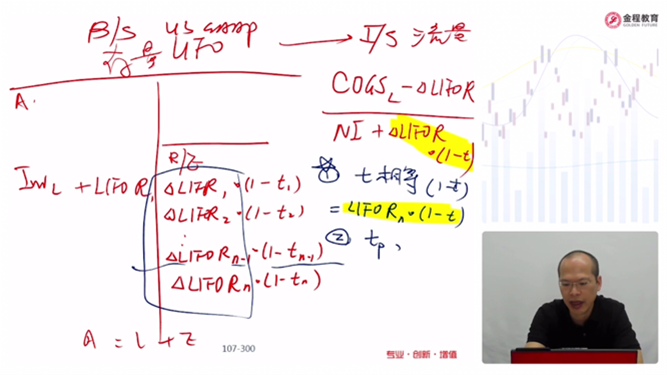 B/S US GAAP
LIFO → I/S 流量
A.
COGS_L - ΔLIFOR
NI + ΔLIFOR
·(1-t)
R/E
Inv_L + LIFOR
ΔLIFOR₁·(1-t₁)
ΔLIFOR₂·(1-t₂)
⋮
ΔLIFORₙ₋₁·(1-tₙ₋₁)
ΔLIFORₙ·(1-tₙ)
① t相等 (1-t)
= LIFORₙ·(1-t)
② tₚ,
A = L + E
107-300
专业·创新·增值
金程教育
GOLDEN FUTURE